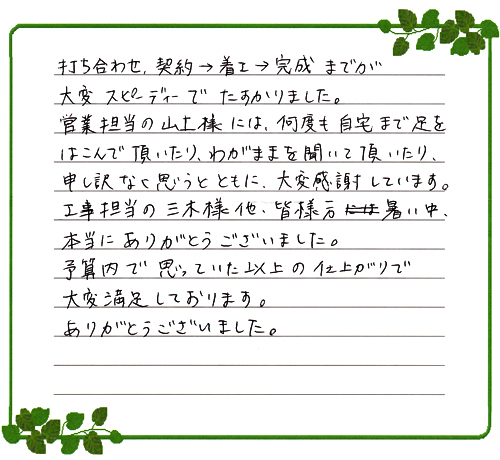 打ち合わせ、契約→着工→完成までが
大変スピーディーでたすかりました。
営業担当の山上様には、何度も自宅まで足を
はこんで頂いたり、わがままを聞いて頂いたり、
申し訳なく思うとともに、大変感謝しています。
工事担当の三木様他、皆様方 暑い中、
本当にありがとうございました。
予算内で思っていた以上の仕上がりで
大変満足しております。
ありがとうございました。